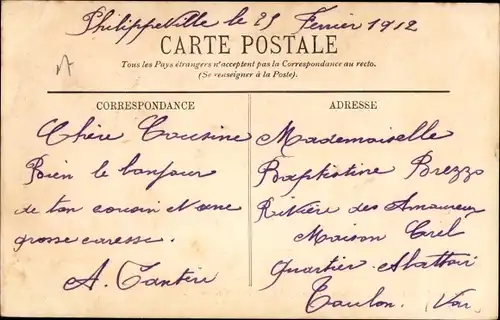 Philippeville le 25 Fevrier 1912
CARTE POSTALE
Tous les Pays étrangers n'acceptent pas la Correspondance au recto.
(Se renseigner à la Poste).
CORRESPONDANCE
Chère Cousine
Bien le bonjour
de ton cousin
grosse caresse.
A.
ADRESSE
Mademoiselle
Baptistine Brezzo
Rivière des Amoureux
Maison
quartier Abattoir
Toulon. Var